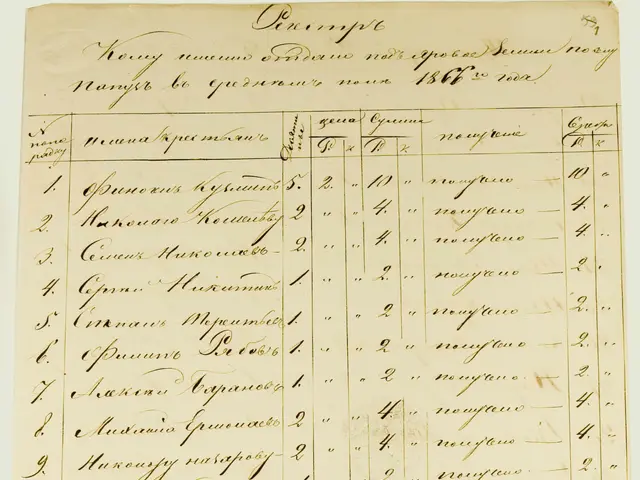 Реестръ
Кому именно отдано подъ яровое земли по
въ среднемъ поле 1866 го года.
N по порядку имена крестьянъ цена Сумма получение Сереб
Р. к Р. к Р. к
1. Кузмитъ 5. 2. " 10 " получено — 10 "
2. Николаю 2 " " 4. " получено — 4. "
3. Семенъ Николаевъ 2. " " 4. " получено — 4. "
4. Сергей Никитинъ 1. " " 2. " получено — 2. "
5. Степанъ 1. " " 2 " получено — 2. "
6. Филипъ Рябовъ 1. " " 2 " получено — 2. "
7. Алексей Барановъ 1. " " 2 " получено — 2. "
8. Михайла Ермолаевъ 2 " " 4. " получено — 4. "
9. Никонору назарову 2 " " 4. " получено — 4. "